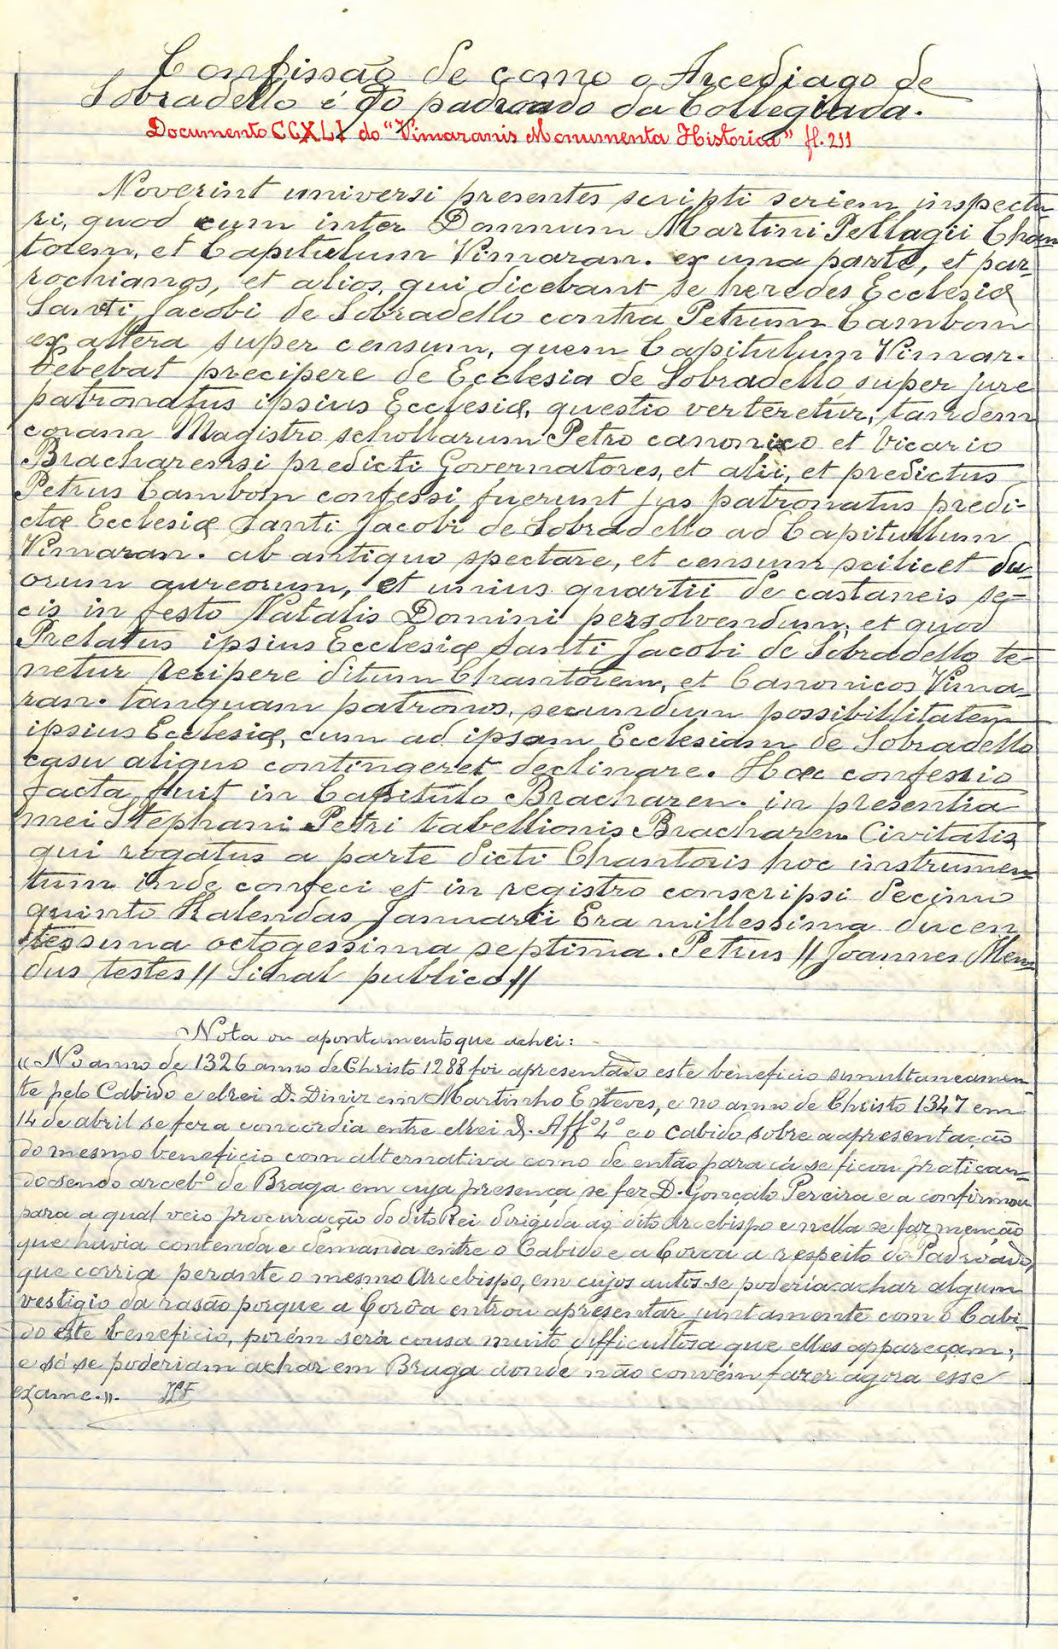 Confissão de como o Arcediago de
Sobradello é do padroado da Collegiada.
Documento CCXLI do "Vimaranis Monumenta Historica" fl. 211
Noverint universi presentes scripti seriem inspectu-
ri, quod cum inter Domnum Martini Pellagii Chan
torem, et Capitulum Vimaran. ex una parte, et par-
rochianos, et alios, qui dicebant se heredes Ecclesiæ
Santi Jacobi de Sobradello contra Petrum Cambom
ex altera super censum, quem Capitulum Vimar.
debebat precipere de Ecclesia de Sobradello super jure
patronatus ipsius Ecclesiæ, questio verteretur, tandem
coram Magistro schollarum Petro canonico et Vicario
Bracharensi predicti Governatores, et alii, et predictus
Petrus Cambom confessi fuerunt jus patronatus predi-
ctæ Ecclesiæ Santi Jacobi de Sobradello ad Capitullum
Vimaran. ab antiquo spectare, et censum scilicet du-
orum aureorum, et unius quartii de castaneis se-
cis in festo Natalis Domini persolvendum, et quod
Prelatus ipsius Ecclesiæ Santi Jacobi de Sobradello te-
netur recipere ditum Chantorem, et Canonicos Vima-
ran. tanquam patronos, secundum possibillitatem
ipsius Ecclesiæ, cum ad ipsam Ecclesiam de Sobradello
casu aliquo contingeret declinare. Hæc confessio
facta fuit in Capitulo Bracharen. in presentia
mei Stephani Petri tabellionis Bracharen Civitatis,
qui rogatus a parte dicti Chantoris hoc instrumen
tum inde confeci et in registro conscripsi decimo
quinto Kalendas Januarii Era millessima ducen
tessima octogessima septima. Petrus // Joannes Men
dus testes // Sinal publico //
Nota ou apontamento que achei:
"No anno de 1326 anno de Christo 1288 foi apresentado este beneficio simultaneamen
te pelo Cabido e elrei D. Diniz em Martinho Esteves, e no anno de Christo 1347 em
14 de abril se fez a concordia entre elrei D. Affº 4º e o Cabido sobre a apresentação
do mesmo beneficio com alternativa como de então para cá se ficou pratican-
do sendo arcebº de Braga em cuja presença se fez D. Gonçalo Pereira e a confirmou
para a qual veio procuração do dito Rei dirigida ao dito Arcebispo e nella se faz menção
que havia contenda e demanda entre o Cabido e a Coroa a respeito do Padroado,
que corria perante o mesmo Arcebispo, em cujos autos se poderia achar algum
vestigio da rasão porque a Corôa entrou apresentar juntamente com o Cabi-
do este beneficio, porém será cousa muito difficultosa que elles appareçam;
e só se poderiam achar em Braga donde não convém fazer agora esse
exame.".